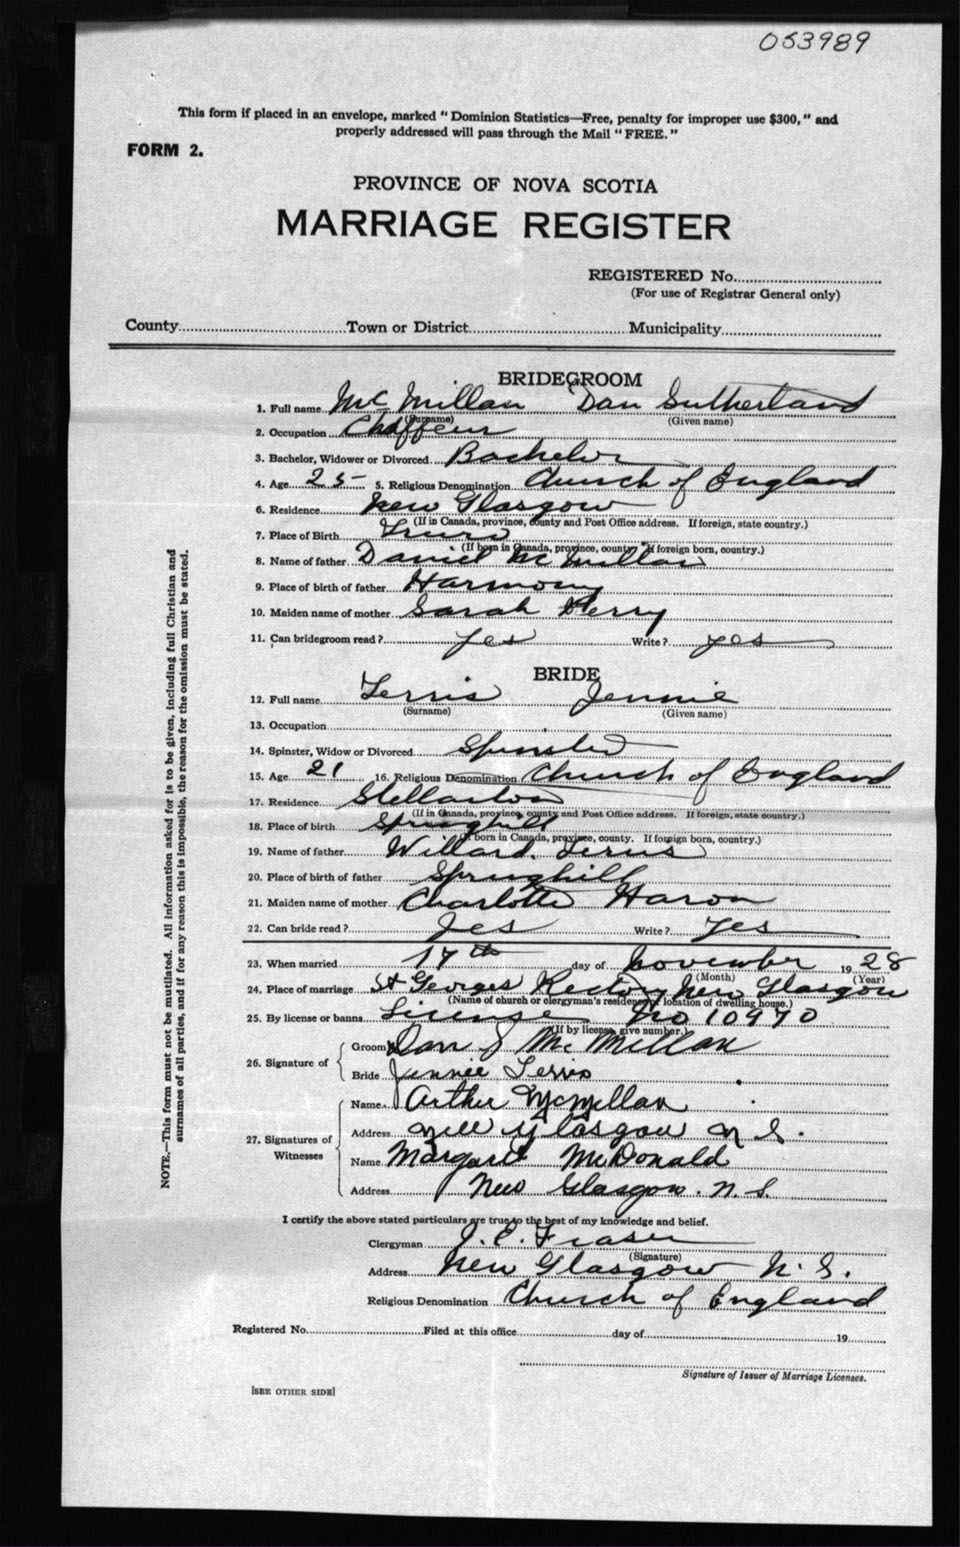 053989
This form if placed in an envelope, marked "Dominion Statistics—Free, penalty for improper use $300," and
properly addressed will pass through the Mail "FREE."
FORM 2.
PROVINCE OF NOVA SCOTIA
MARRIAGE REGISTER
REGISTERED No.
(For use of Registrar General only)
County Town or District Municipality
BRIDEGROOM
1. Full name McMillan Dan Sutherland
(Surname) (Given name)
2. Occupation Chaffeur
3. Bachelor, Widower or Divorced Bachelor
4. Age 25 5. Religious Denomination Church of England
6. Residence New Glasgow
(If in Canada, province, county and Post Office address. If foreign, state country.)
7. Place of Birth Truro
(If born in Canada, province, county. If foreign born, country.)
8. Name of father Daniel McMillan
9. Place of birth of father Harmony
10. Maiden name of mother Sarah
11. Can bridegroom read? yes Write? yes
BRIDE
12. Full name Ferris Jennie
(Surname) (Given name)
13. Occupation
14. Spinster, Widow or Divorced Spinster
15. Age 21 16. Religious Denomination Church of England
17. Residence Stellarton
(If in Canada, province, county and Post Office address. If foreign, state country.)
18. Place of birth Springhill
(If born in Canada, province, county. If foreign born, country.)
19. Name of father Willard Ferris
20. Place of birth of father Springhill
21. Maiden name of mother Charlotte
22. Can bride read? Yes Write? Yes
23. When married 17th day of November 1928
(Month) (Year)
24. Place of marriage St Georges Rectory New Glasgow
(Name of church or clergyman's residence or location of dwelling house.)
25. By license or banns License No 10970
(If by license, give number.)
26. Signature of
Groom Dan S McMillan
Bride Jennie Ferris
27. Signatures of Witnesses
Name Arthur McMillan
Address New Glasgow N S.
Name Margaret McDonald
Address New Glasgow. N. S.
I certify the above stated particulars are true to the best of my knowledge and belief.
Clergyman J. E. Fraser
(Signature)
Address New Glasgow N. S.
Religious Denomination Church of England
Registered No. Filed at this office day of 19
Signature of Issuer of Marriage Licenses.
[SEE OTHER SIDE]
NOTE.—This form must not be mutilated. All information asked for is to be given, including full Christian and
surnames of all parties, and if for any reason this is impossible, the reason for the omission must be stated.